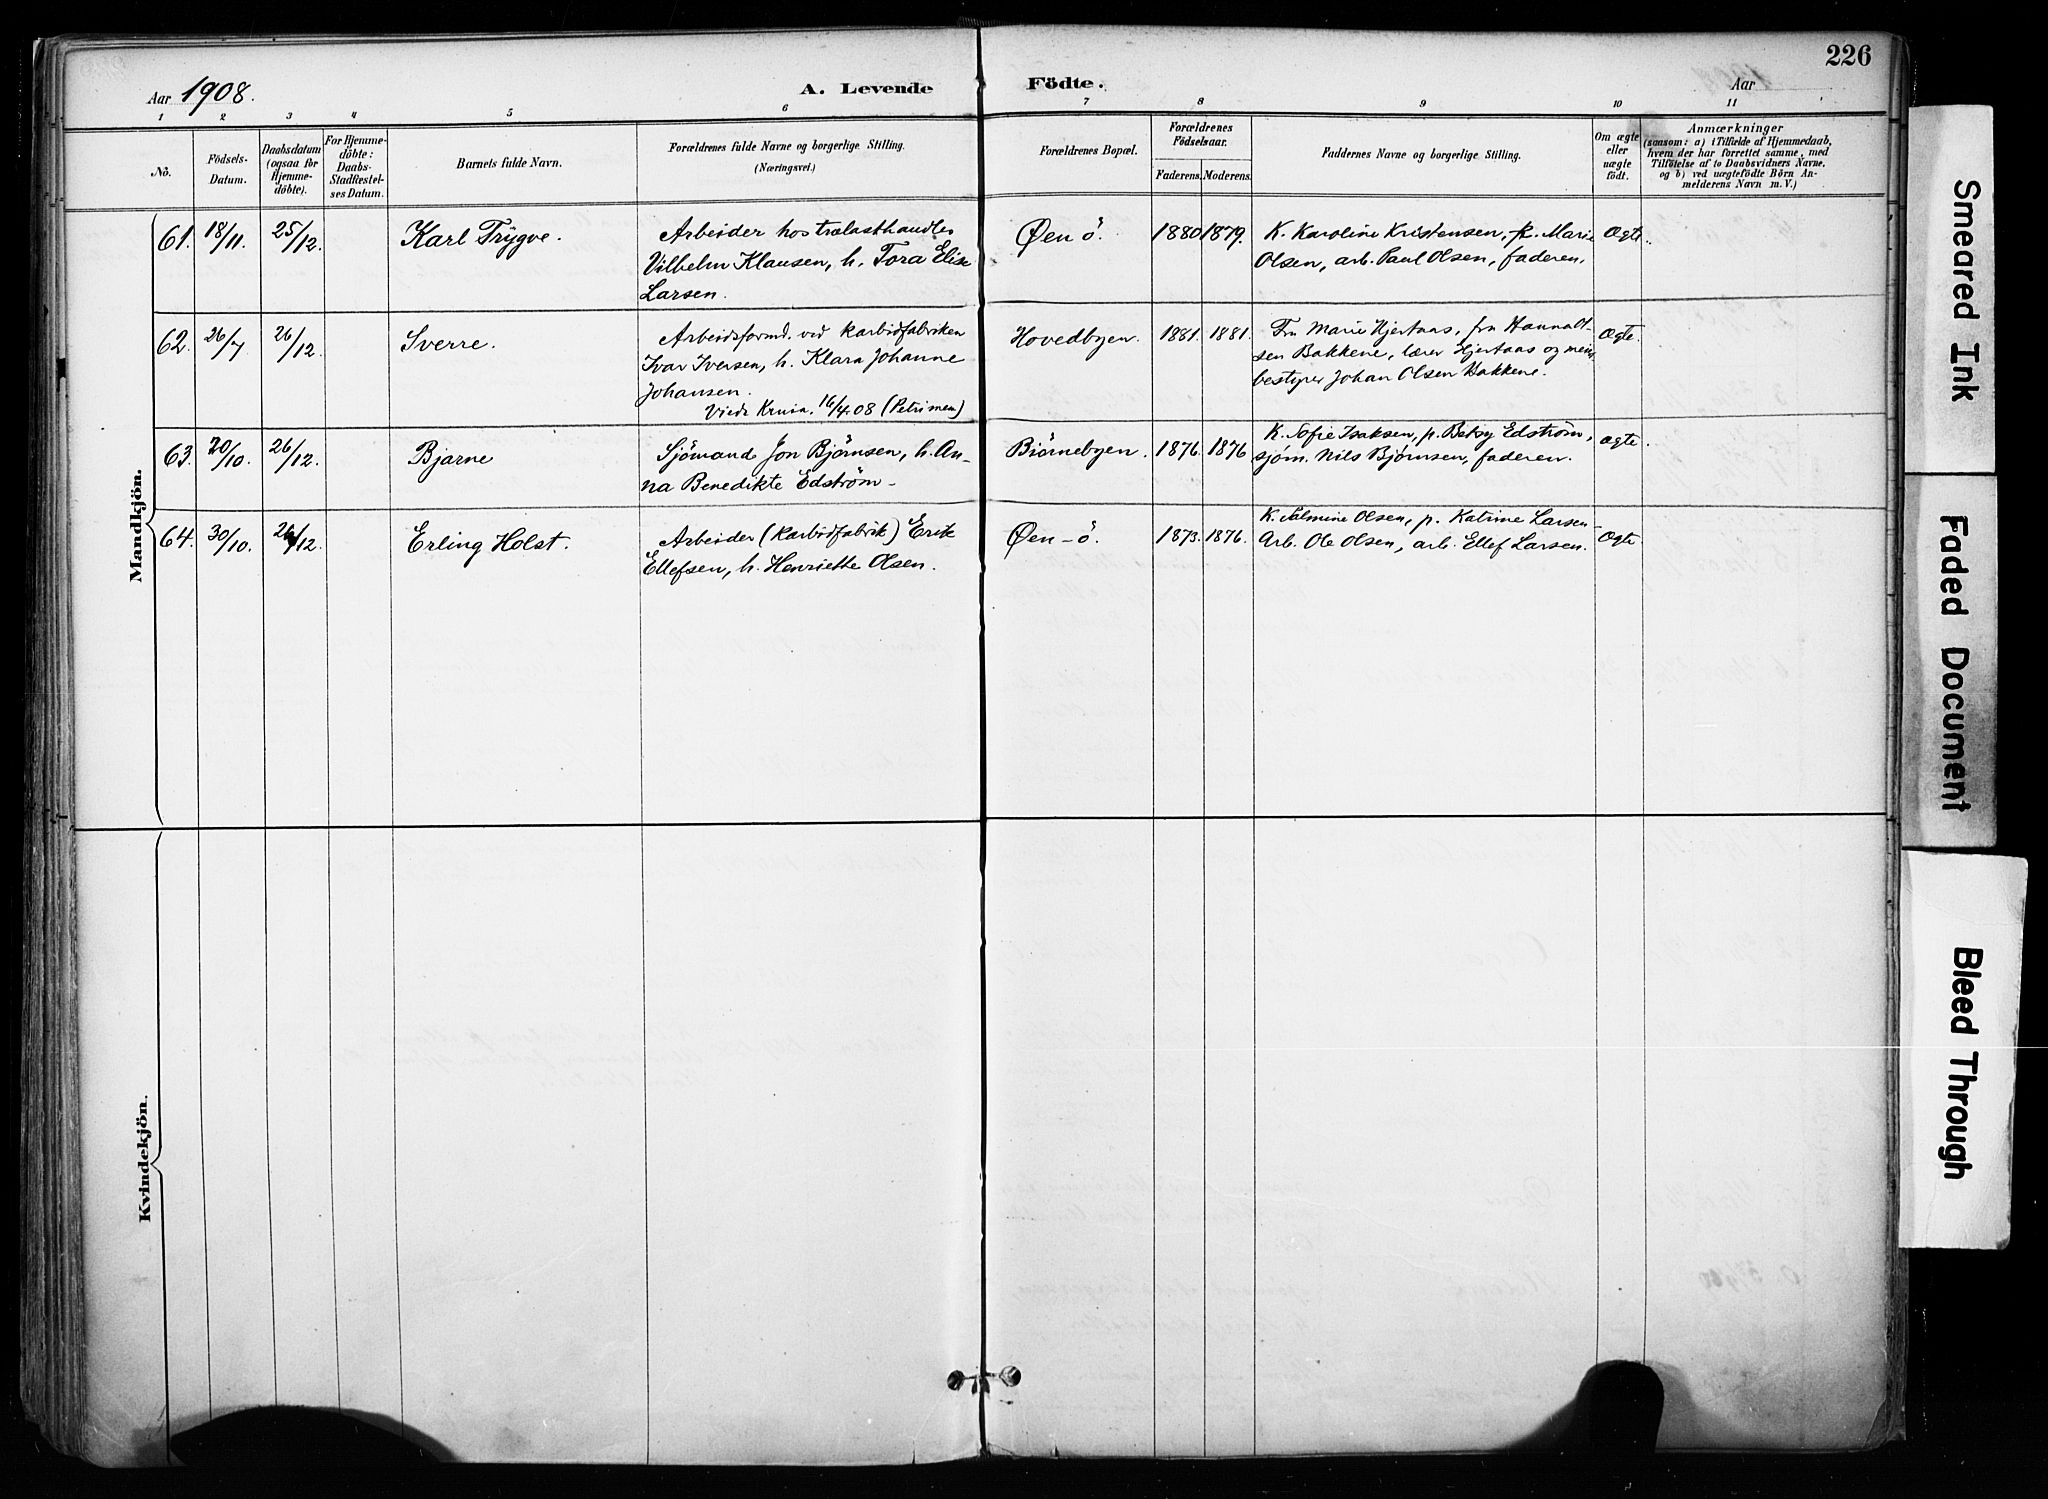 226
Aar 1908.
A. Levende Födte.
Aar
1 2 3 4 5 6 7 8 9 10 11
No.
Födsels-
Datum.
Daabsdatum
(ogsaa for
Hjemme-
döbte).
For Hjemme-
döbte:
Daabs-
Stadfæstel-
ses Datum.
Barnets fulde Navn.
Forældrenes fulde Navne og borgerlige Stilling.
(Næringsvei.)
Forældrenes Bopæl.
Forældrenes
Födselsaar.
Faderens. Moderens.
Faddernes Navne og borgerlige Stilling.
Om ægte
eller
uægte
födt.
Anmærkninger
(saasom: a) i Tilfælde af Hjemmedaab,
hvem der har forrettet samme, med
Tilföielse af to Daabsvidners Navne.
og b) ved uægtefödte Börn An-
melderens Navn m. V.)
Mandkjön.
61. 18/11. 25/12. Karl Trygve.
Arbeider hos trælasthandler
Vilhelm Klausen, h. Tora Elise
Larsen.
Øen ö. 1880 1879.
K. Karoline Kristensen, p. Marie
Olsen, arb. Paul Olsen, faderen.
Ægte.
62. 26/7 26/12. Sverre.
Arbeidsformd. ved karbidfabriken
Ivar Iversen, h. Klara Johanne
Johansen.
Viede Krnia. 16/4.08 (Petri men)
Hovedbyen. 1881. 1881.
Fru Marie Hjertaas, fru
Bakkene, lærer Hjertaas og
bestyrer Johan Olsen Bakkene.
Ægte.
63. 20/10. 26/12. Bjarne
Sjömand Jon Björnsen, h. An-
na Benedikte Edström.
Biørnebyen. 1876. 1876
K. Sofie Isaksen, p. Betsy Edström,
sjøm. Nils Bjørnsen, faderen.
Ægte
64. 30/10. 26/12. Erling Holst.
Arbeider (karbidfabrik) Erik
Ellefsen, h. Henriette Olsen.
Øen - ö. 1873. 1876.
K. Salmine Olsen, p. Katrine Larsen
Arb. Ole Olsen, arb. Ellef Larsen.
Ægte
Kvindekjön.
Smeared Ink
Faded Document
Bleed Through